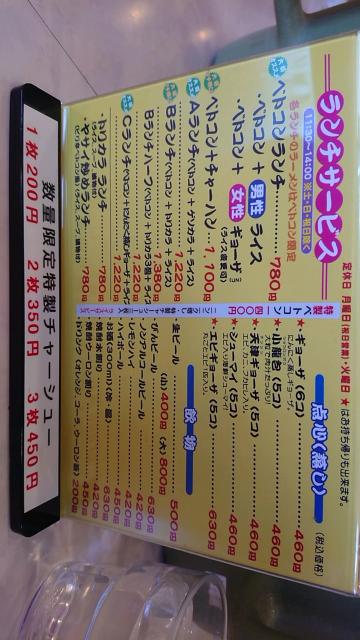 ランチサービス
11:30~14:00 ※土・日・祝日除く
各ランチのラーメンはベトコン限定
ベトコンランチ……780円
・ベトコン + 男性 ライス
・ベトコン + 女性 ギョーザ
(ライス変更可)
ベトコン+チャーハン…1,100円
Aランチ(ベトコン + ゲソカラ + ライス)
1,220円
Bランチ(ベトコン + トリカラ + ライス)
1,380円
Bランチハーフ(ベトコン + トリカラ3個 + ライス)
1,220円
1,220円
・トリカラ ランチ……780円
・ヤサイ炒めランチ……780円
定休日 月曜日(祝日営業)・火曜日
★はお持ち帰りも出来ます。
点心(蒸し)
(税込価格)
★ギョーザ(6コ)……460円
にんにく蒸しギョーザ。
★小龍包(5コ)……460円
★天津ギョーザ(5コ)……460円
★シューマイ(5コ)……460円
★エビギョーザ(5コ)……630円
丸ごとエビ1匹入り。
飲物
生ビール……500円
びんビール (小)400円 (大)800円
ノンアルコールビール……630円
レモンハイ……420円
ハイボール……450円
お酒(300ml)(冷・燗)……630円
焼酎水割り……420円
焼酎ウーロン割り……450円
ドリンク(オレンジ、コーラ、ウーロン茶)200円
数量限定特製チャーシュー
1枚200円 2枚350円 3枚450円